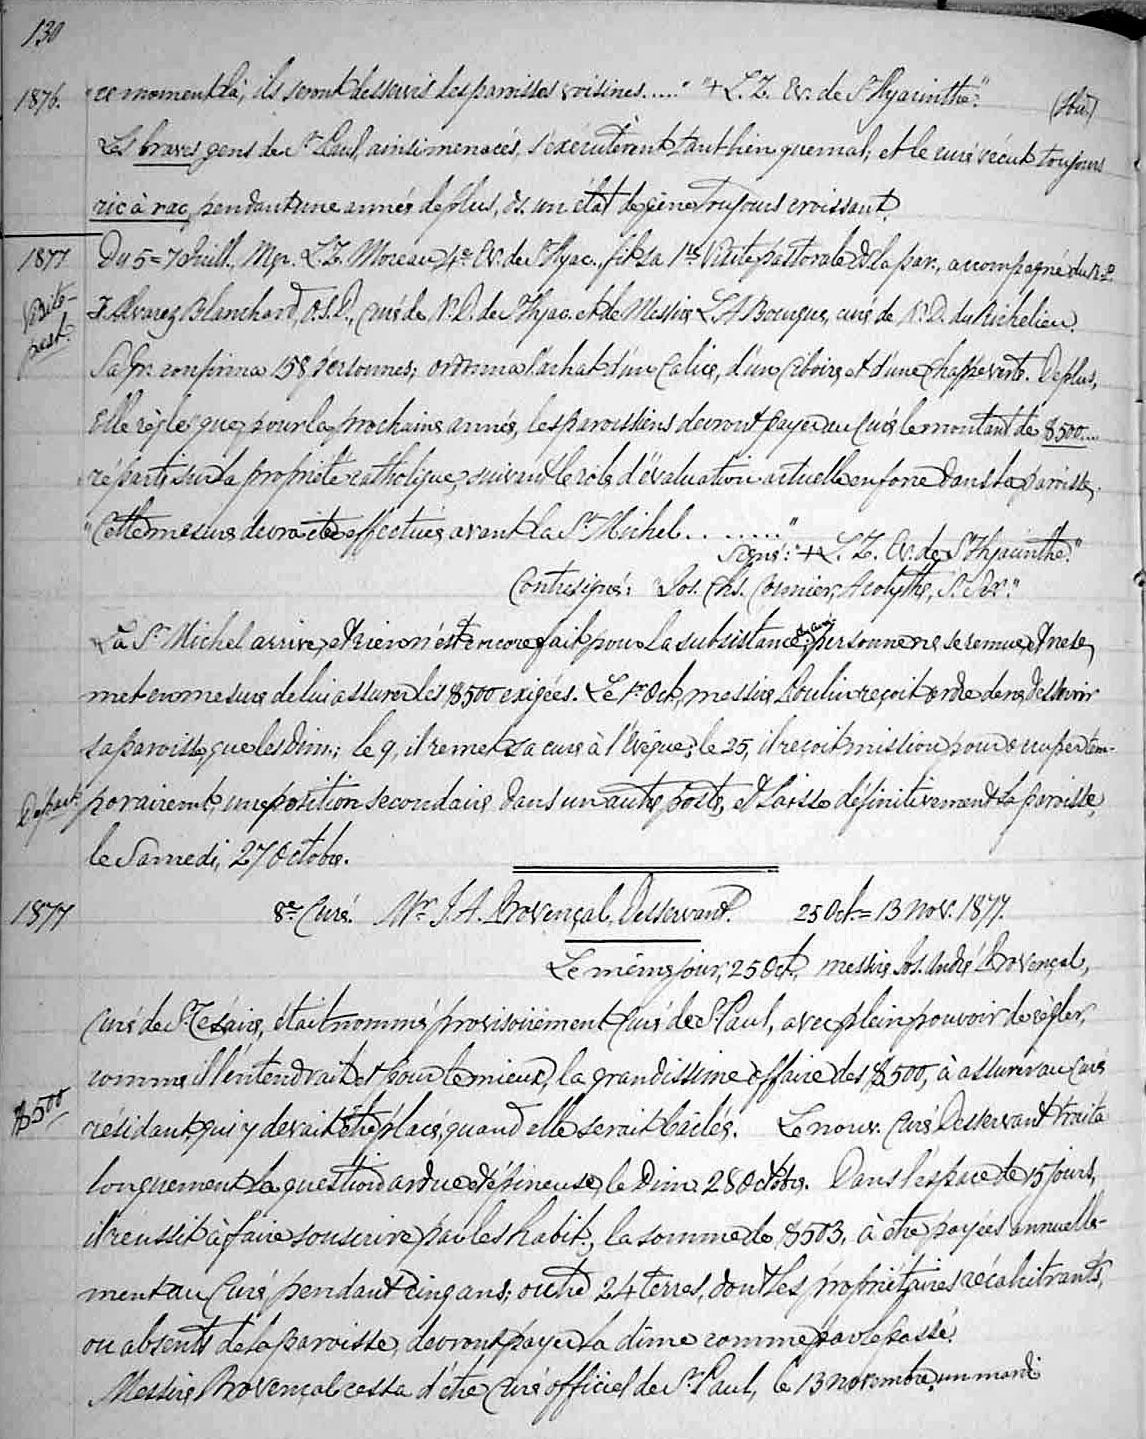 130
1876. "ce moment là, ils seront desservis les paroisses voisines....." "+ L. Z. Ev. de St Hyacinthe". (Ibid)
Les braves gens de St Paul, ainsi menacés, s'exécutèrent tant bien que mal, et le curé vécut toujours
ric à rac, pendant une année de plus, ds. un état de gêne toujours croissant.
1877 Du 5=7 Juill., Mgr. L. Z. Moreau 4e Ev. de St Hyac., fit sa 1re Visite pastorale d. la par., accompagné du R. P.
Visite- past. F. Alvarez Blanchard, O.S.D., Curé de N. D. de St Hyac. et de Messire L. A Bourque, curé de N. D. du Richelieu.
Sa Gr. confirma 158 personnes; ordonna l'achat d'un Calice, d'un Ciboire et d'une Chappe verte. De plus,
Elle règle que, pour la prochaine année, les paroissiens devront payer au Curé le montant de $500....
réparti sur la propriété catholique, suivant le role d'évaluation actuelle en force dans la paroisse.
"Cette mesure devra être effectuée avant la St Michel........"
Signé: "+ L. Z. Ev. de St Hyacinthe."
Contresigné: "Jos. Chs. Cormier, Acolythe, S. Sre."
La St Michel arrive, et rien n'est encore fait pour la subsistance; personne ne se remue, et ne se
met en mesure de lui assurer les $500 exigées. Le 1er Oct., messire Poulin reçoit ordre de ne desservir
sa paroisse que les Dim.; le 9, il remet sa cure à l'Evêque; le 25, il reçoit mission pour occuper tem-
Départ porairemt, une position secondaire, dans un autre poste, et laisse définitivement la paroisse,
le Samedi, 27 Octobre.
1877 8e Curé. Mr. J. A. Provençal, Desservant. 25 Oct=13 Nov. 1877.
Le même jour, 25 Oct., messire Jos. André Provençal,
curé de St Césaire, était nommé provisoirement Curé de St Paul, avec plein pouvoir de régler,
comme il l'entendrait et pour le mieux, la grandissime affaire des $500, à assurer au Curé
$500 résidant, qui y devait être placé, quand elle serait bâclée. Le nouv. Curé Desservant traita
longuement la question ardue et épineuse, le Dim. 28 Octobre. Dans l'espace de 15 jours,
il réussit à faire souscrire par les habit., la somme de $503. à être payées annuelle-
ment au Curé pendant cinq ans; outre 24 terres, dont les propriétaires récalcitrants,
ou absents de la paroisse, devront payer la dîme comme par le passé.
Messire Provençal cessa d'être Curé officiel de St Paul, le 13 novembre, un mardi